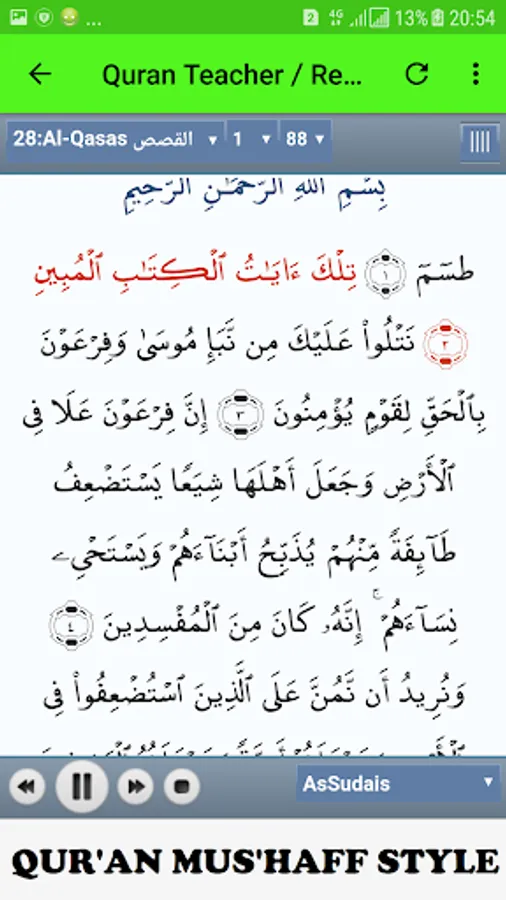 ... 2 4G 13% 20:54
Quran Teacher / Re...
28:Al-Qasas القصص 1 88
بِسْمِ اللهِ الرَّحْمَـٰنِ الرَّحِيمِ
طسٓمٓ ١ تِلْكَ ءَايَـٰتُ ٱلْكِتَـٰبِ ٱلْمُبِينِ
٢ نَتْلُوا۟ عَلَيْكَ مِن نَّبَإِ مُوسَىٰ وَفِرْعَوْنَ
بِٱلْحَقِّ لِقَوْمٍ يُؤْمِنُونَ ٣ إِنَّ فِرْعَوْنَ عَلَا فِى
ٱلْأَرْضِ وَجَعَلَ أَهْلَهَا شِيَعًا يَسْتَضْعِفُ
طَآئِفَةً مِّنْهُمْ يُذَبِّحُ أَبْنَآءَهُمْ وَيَسْتَحْىِۦ
نِسَآءَهُمْ ۚ إِنَّهُۥ كَانَ مِنَ ٱلْمُفْسِدِينَ ٤
وَنُرِيدُ أَن نَّمُنَّ عَلَى ٱلَّذِينَ ٱسْتُضْعِفُوا۟ فِى
AsSudais
QUR'AN MUS'HAFF STYLE